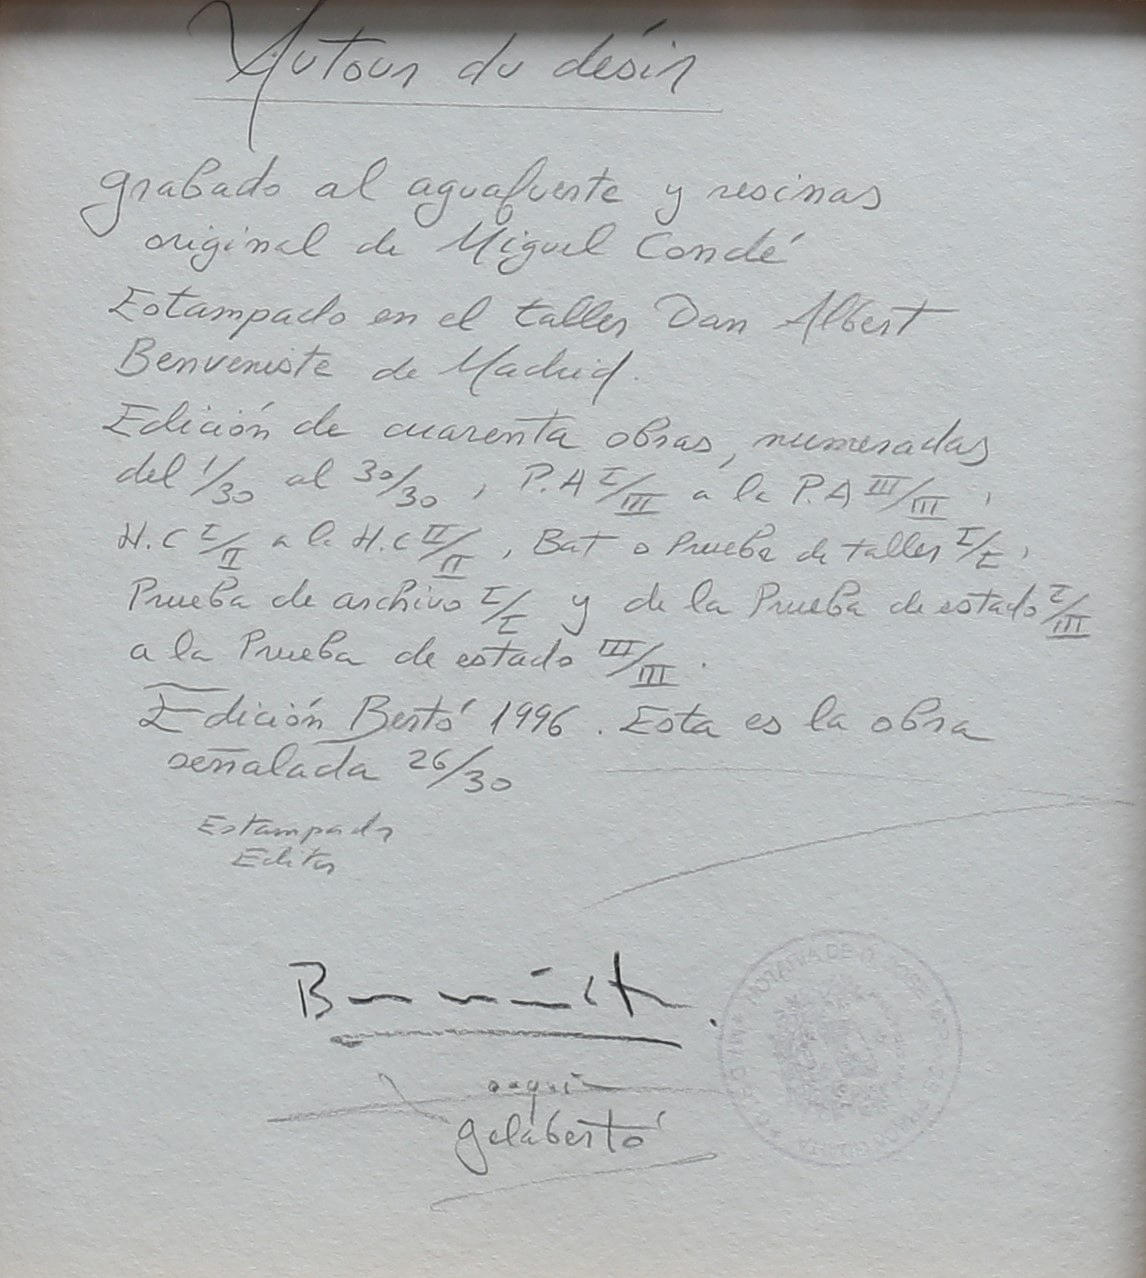 Autour du désir
grabado al aguafuerte y resinas
original de Miguel Condé
Estampado en el taller Dan Albert
Benveniste de Madrid.
Edición de cuarenta obras, numeradas
del 1/30 al 30/30, P.A I/III a la P.A III/III,
H.C I/II a la H.C II/II, Bat o Prueba de taller I/I,
Prueba de archivo I/I y de la Prueba de estado I/III
a la Prueba de estado III/III.
Edición Bertó 1996. Esta es la obra
señalada 26/30
Estampador
Editor
gelabertó
NOTARIA DE D. JOSE